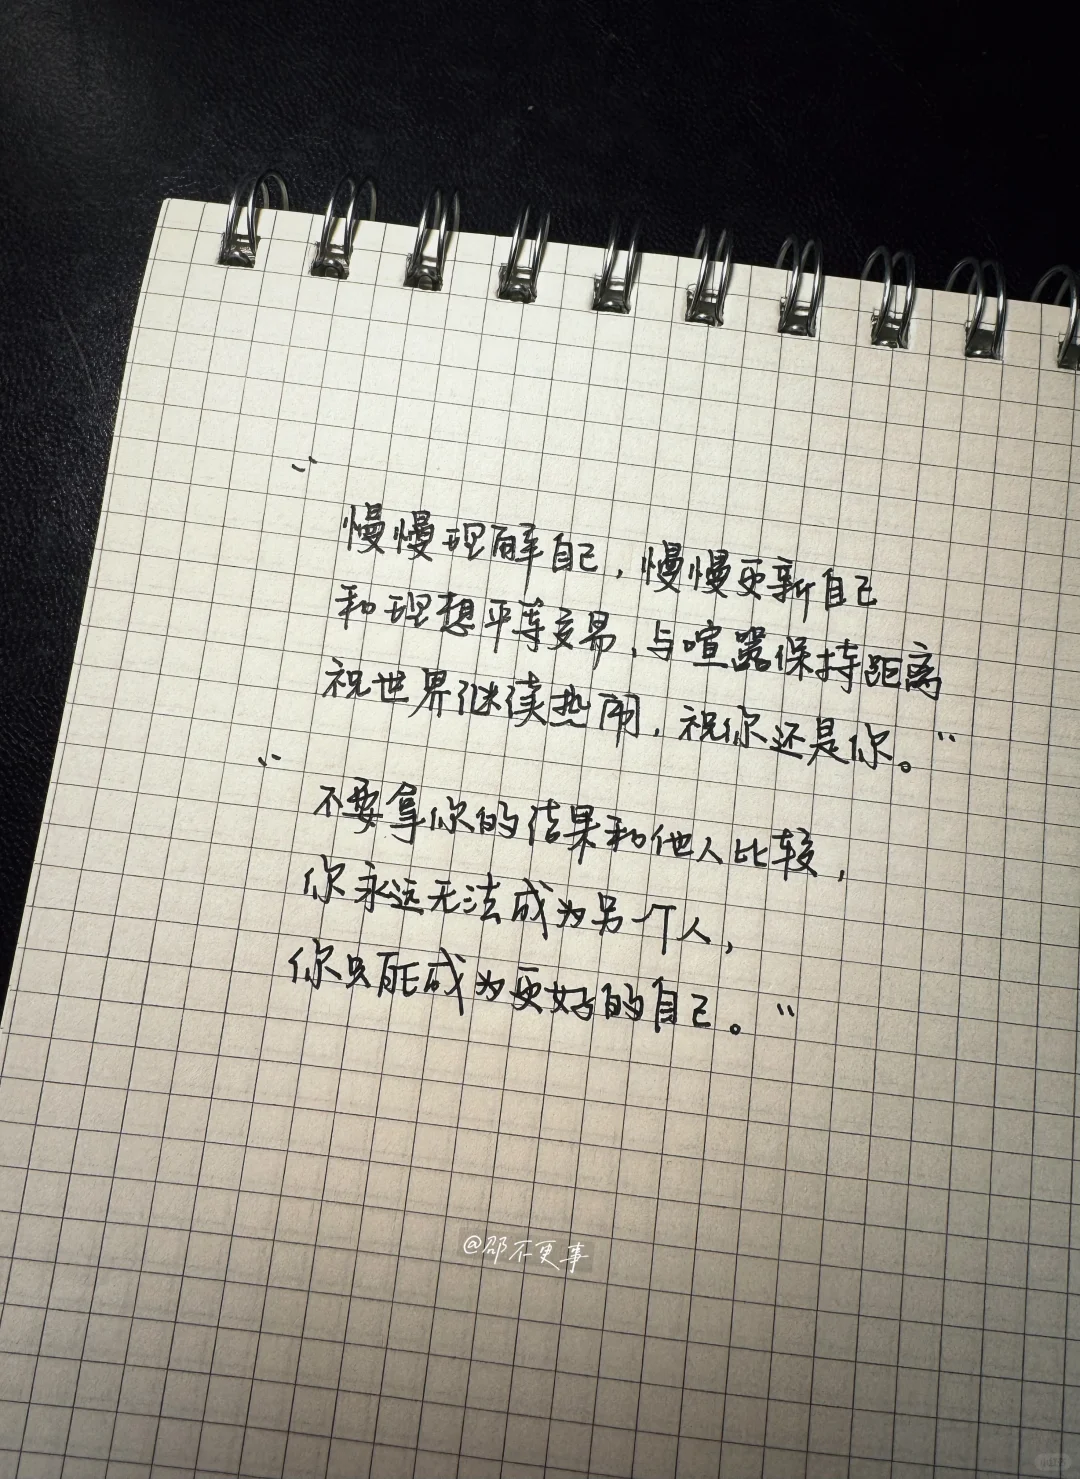 “慢慢理解自己，慢慢更新自己
和理想平等交易，与喧嚣保持距离
祝世界继续热闹，祝你还是你。”
“不要拿你的结果和他人比较，
你永远无法成为另一个人，
你只能成为更好的自己。”
@邵不更事